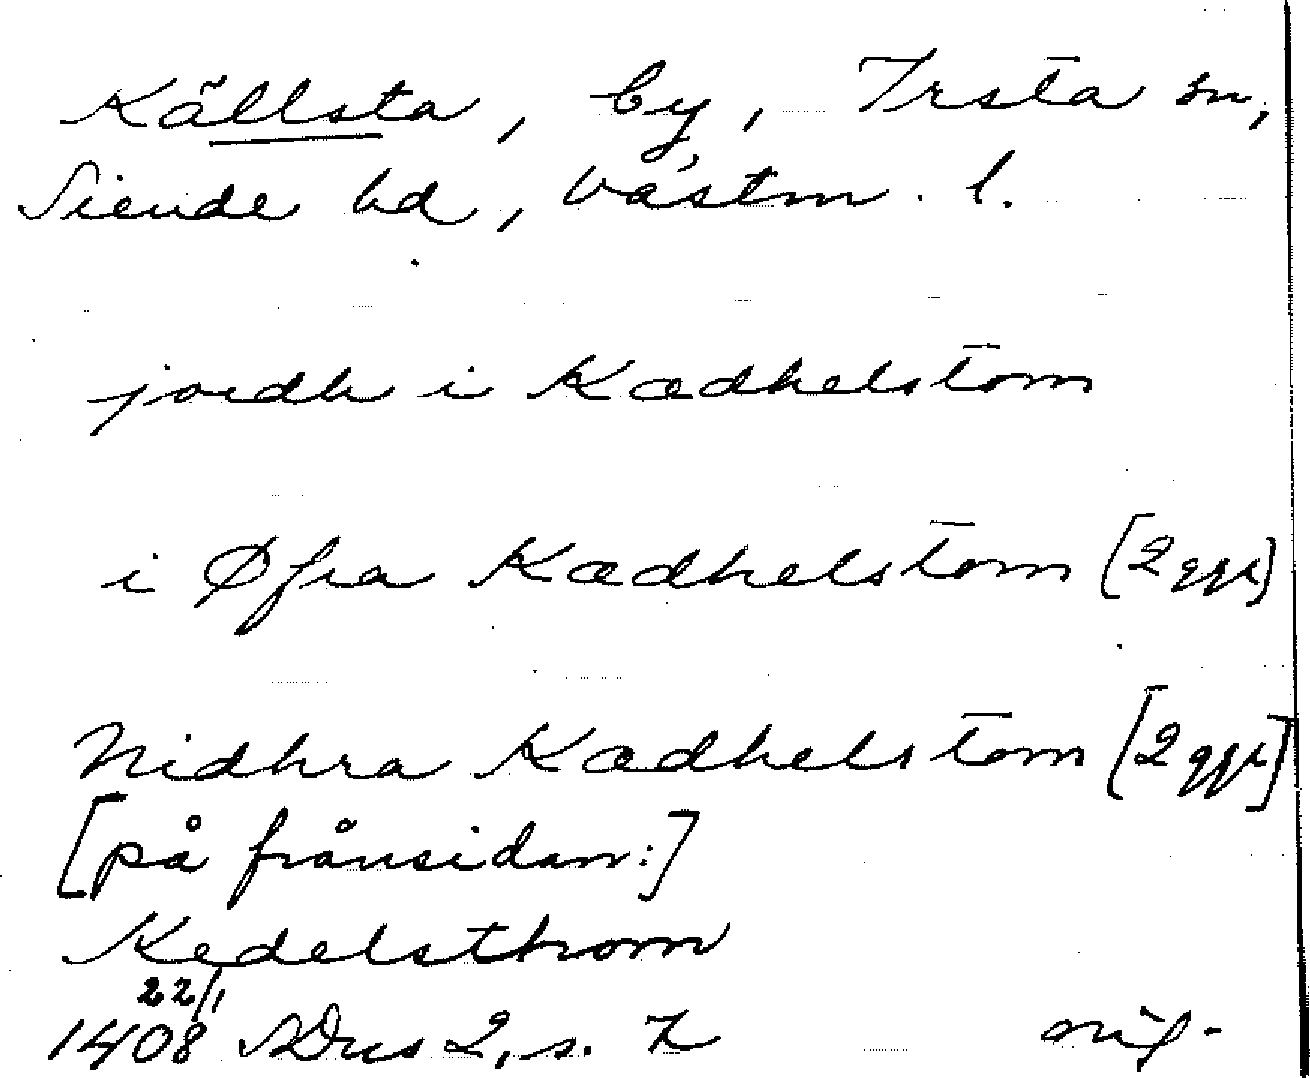 Källsta, by, Irsta sn,
Siende hd, Västm. l.
jordh i Kædhelstom
i Øfra Kædhelstom [2 ggr]
Nidhra Kædhelstom [2 ggr]
[på frånsidan:]
Kedelsthom
22/1
1408 SDns 2, s. 7